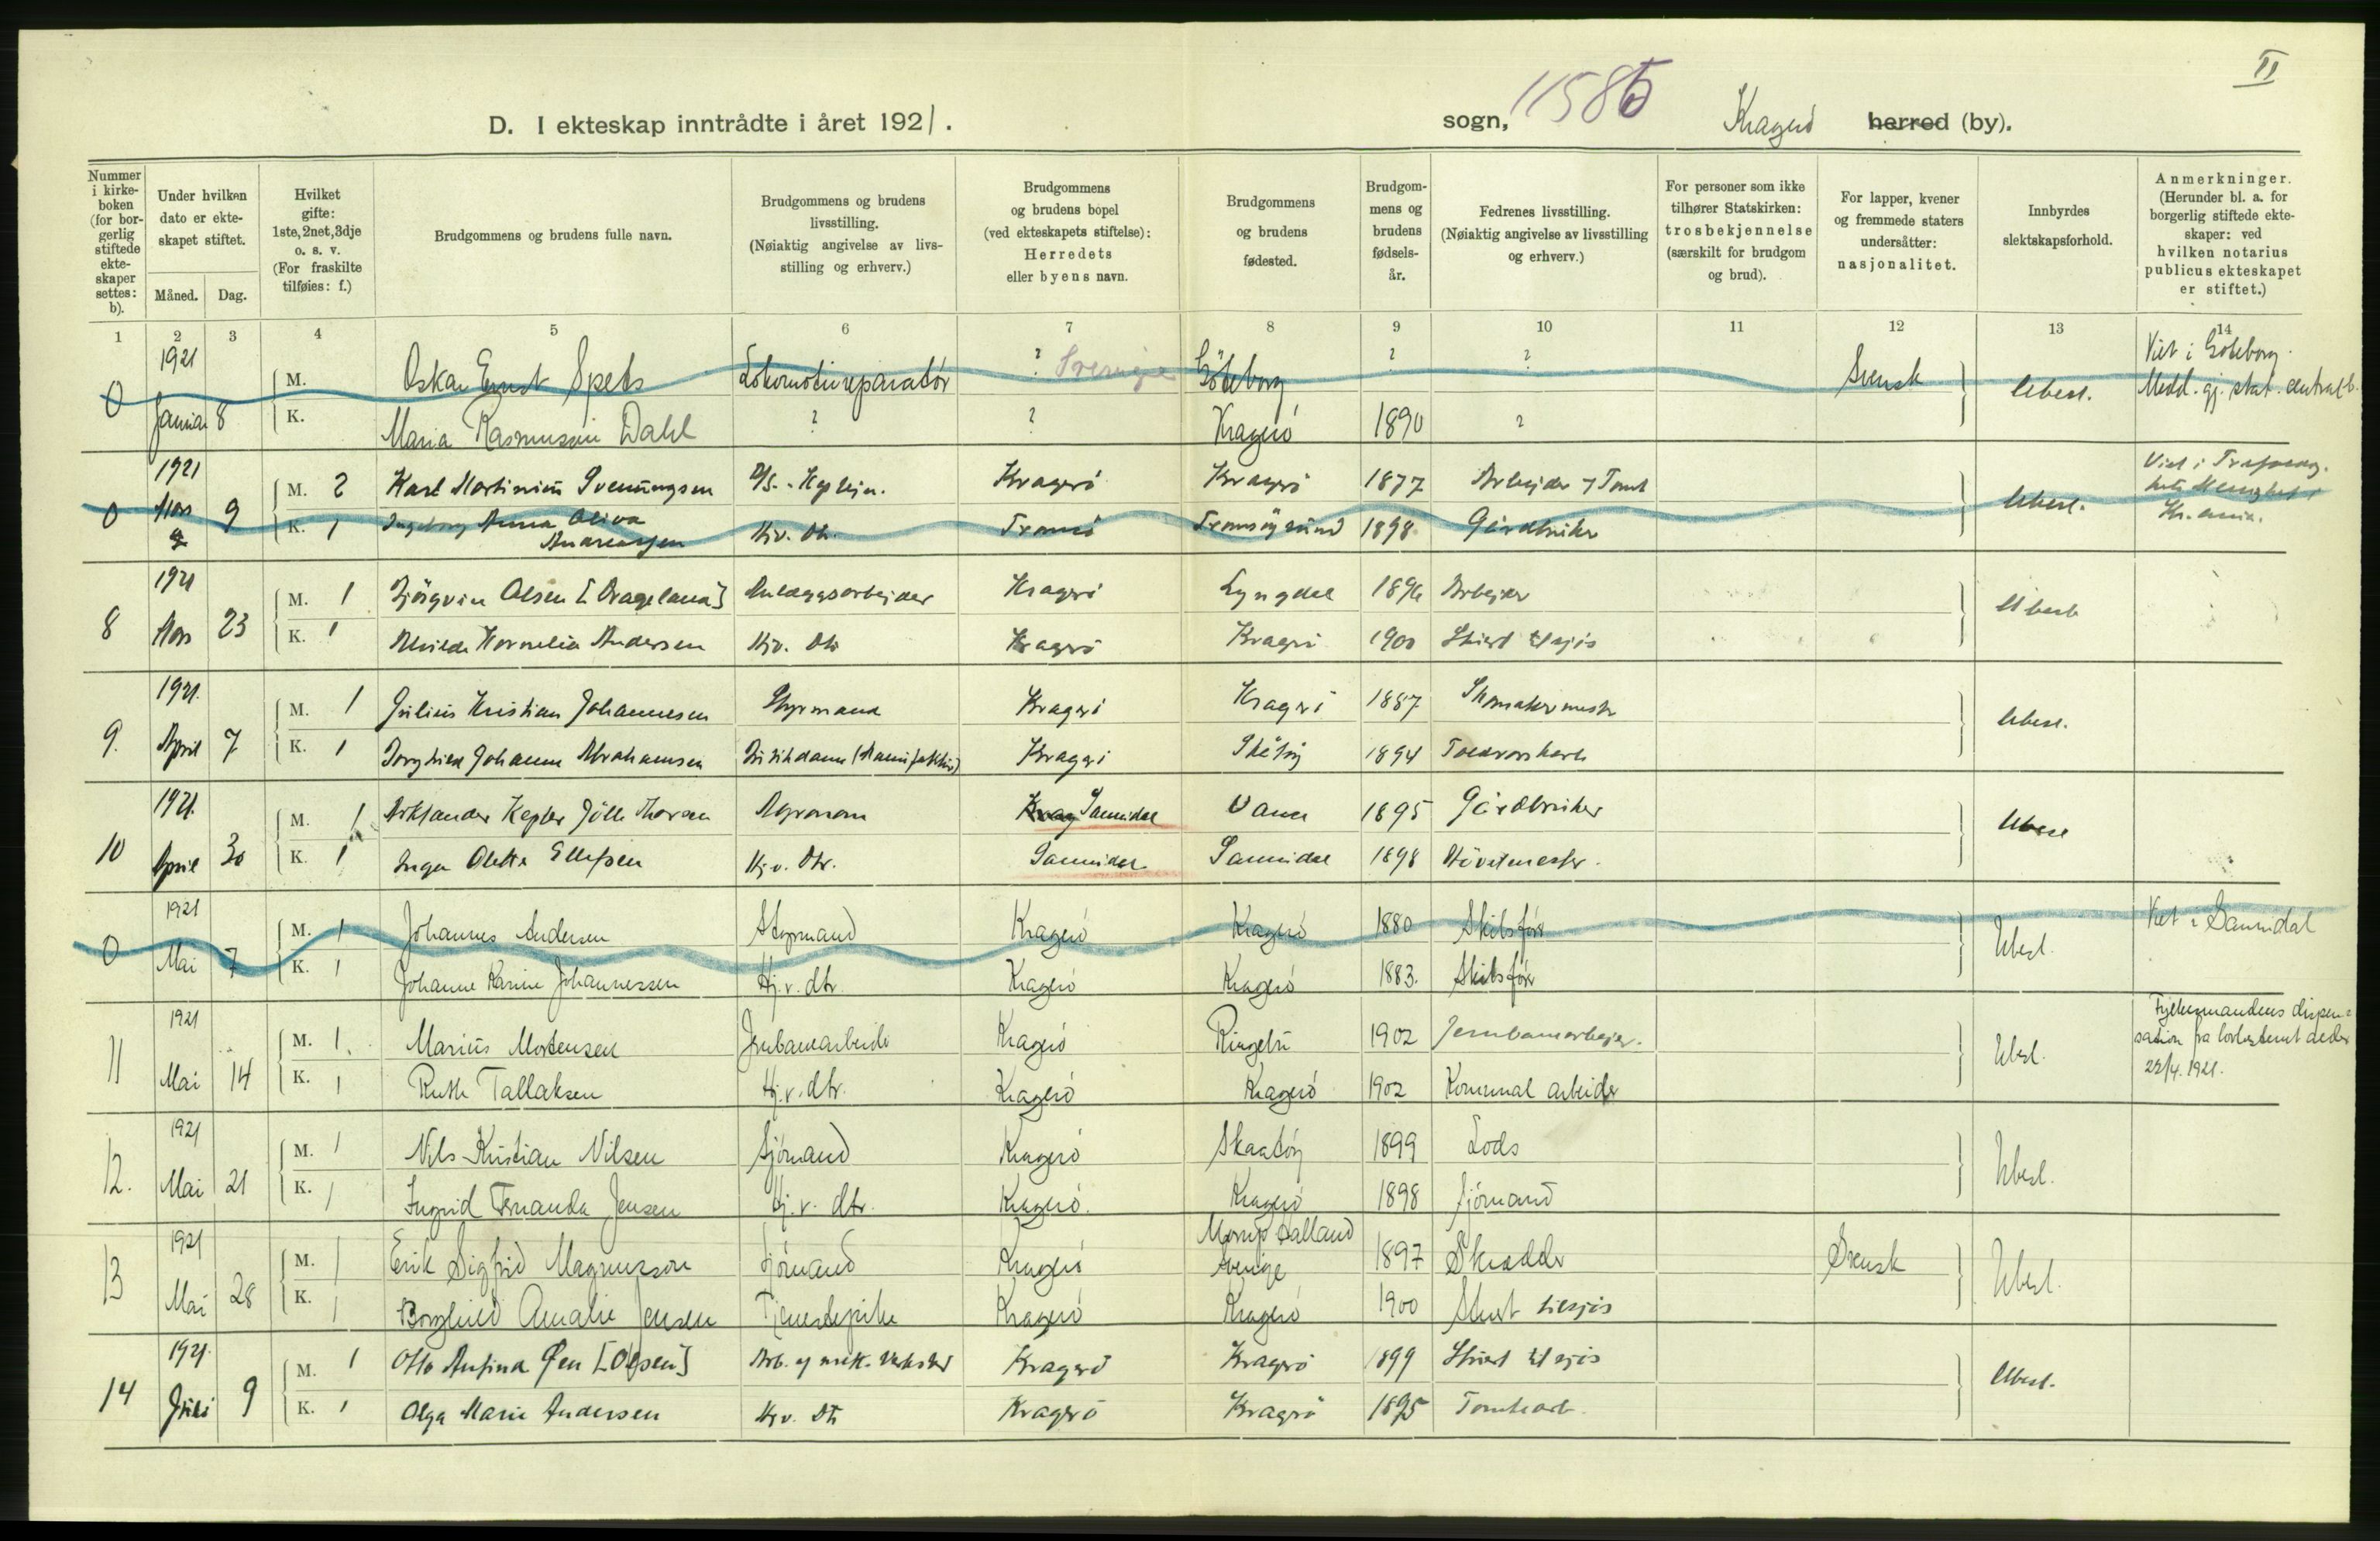 II
D. I ekteskap inntrådte i året 1921.
sogn, 11585 Kragerö herred (by).
Nummer i kirke-boken (for bor-gerlig stiftede ekte-skaper settes: b).
Under hvilken dato er ekte-skapet stiftet.
Måned. Dag.
Hvilket gifte: 1ste, 2net, 3dje o. s. v. (For fraskilte tilføies: f.)
Brudgommens og brudens fulle navn.
Brudgommens og brudens livsstilling. (Nøiaktig angivelse av livs-stilling og erhverv.)
Brudgommens og brudens bopel (ved ekteskapets stiftelse): Herredets eller byens navn.
Brudgommens og brudens fødested.
Brudgom-mens og brudens fødsels-år.
Fedrenes livsstilling. (Nøiaktig angivelse av livsstilling og erhverv.)
For personer som ikke tilhører Statskirken: trosbekjennelse (særskilt for brudgom og brud).
For lapper, kvener og fremmede staters undersåtter: nasjonalitet.
Innbyrdes slektskapsforhold.
Anmerkninger. (Herunder bl. a. for borgerlig stiftede ekte-skaper: ved hvilken notarius publicus ekteskapet er stiftet.)
1 2 3 4 5 6 7 8 9 10 11 12 13 14
0 1921 Januar 8 M. Oskar Ernst Spets Lokomotivreparatör ? Sverige Göteborg ? ? Svensk Ubesl. Viet i Göteborg. Medd. gj. stat. centralb.
K. Maria Rasmussen Dahl ? ? Kragerö 1890 ?
0 1921 Mars 9 M. 2 Karl Martinius Svenningsen Kragerö Kragerö 1877 Arbejder Ubesl. Viet i
K. 1 Ingeborg Anna Oliva Andreassen Hjv. Dtr. Tromsö Tromsöysund 1898 Gårdbruker
8 1921 Mars 23 M. 1 Björgvin Olsen [Drageland] Anlægsarbejder Kragerö Lyngdal 1896 Arbejder Ubesl.
K. 1 Alvilde Kornelia Andersen Hjv. Dtr Kragerö Kragerö 1900 Skibst tilsjös
9. 1921. April 7 M. 1 Julius Kristian Johannesen Styrmand Kragerö Kragerö 1887 Skomakermestr Ubesl.
K. 1 Borghild Johanne Abrahamsen Butikdame (Manufaktur) Kragerö Skåtöy 1894
10 1921. April 30 M. 1 Kepler Agronom Krag Sannidal Vanse 1895 Gårdbruker Ubesl
K. 1 Inga Oletta Ellefsen Hj. v. Dtr. Sannidal Sannidal 1898
0 1921 Mai 7 M. 1 Johannes Andersen Styrmand Kragerö Kragerö 1880 Skibsförer Ubesl. Viet i Sannidal
K. 1 Johanne Karine Johannessen Hj. v. dtr. Kragerö Kragerö 1883. Skibsförer
11 1921 Mai 14 M. 1. Marius Mortensen Jernbanearbeider Kragerö Ringebu 1902 Jernbanearbejder. Ubesl. Fylkesmandens dispen-sation fra lovbestemt alder 22/4. 1921.
K. 1 Ruth Tallaksen Hj. v. dtr. Kragerö Kragerö 1902 Kommunal arbeider
12. 1921 Mai 21 M. 1 Nils Kristian Nilsen Sjömand Kragerö Skaatöy 1899 Lods Ubesl.
K. 1 Ingrid Fernanda Jensen Hj. v. dtr. Kragerö. Kragerö 1898 Sjömand
13 1921 Mai 28 M. 1 Erik Sigfrid Magnusson Sjömand Kragerö Morup Halland Sverige 1897 Skrædder Svensk Ubesl.
K. 1 Borghild Amalie Jensen Tjenestepike Kragerö Kragerö 1900 tilsjös
14 1921. Juni 9 M. 1 Otto Øen [Olsen] Arb. v/ mek. Verksted Kragerö Kragerö 1899 tilsjös Ubesl.
K. 1 Olga Marie Andersen Hjv. Dtr Kragerö Kragerö 1895 Tomtearb.